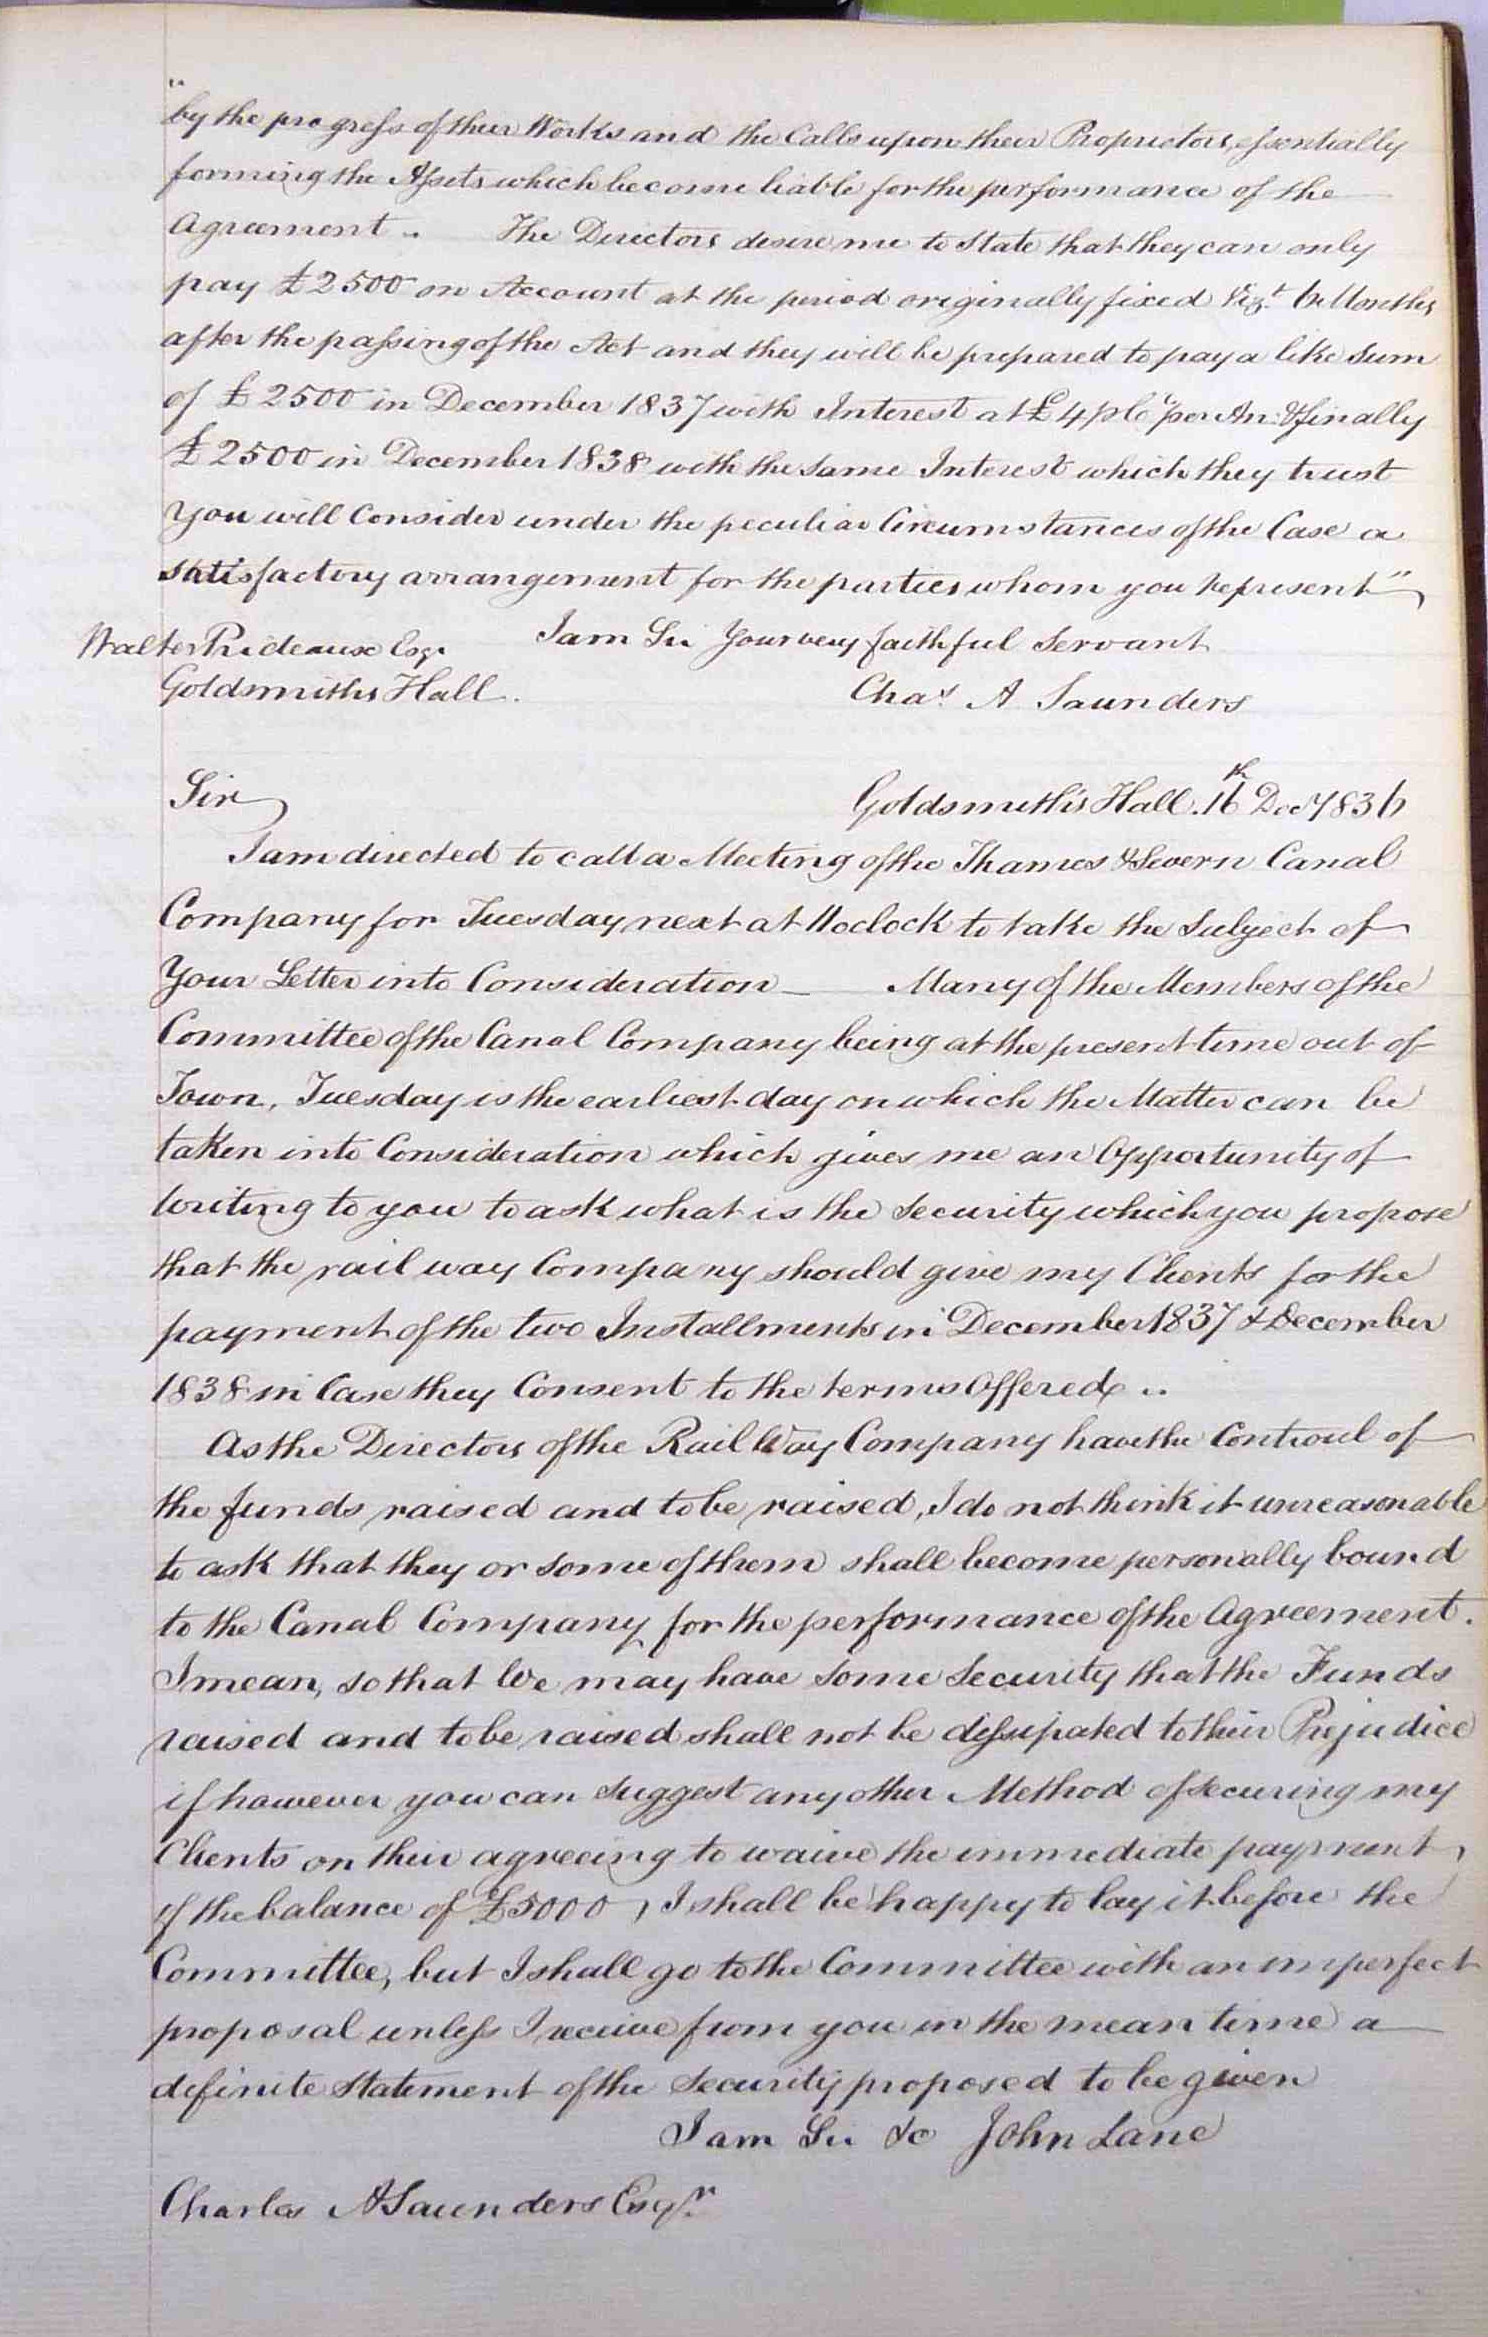 "by the progress of their Works and the Calls upon their Proprietors, essentially
forming the Assets which become liable for the performance of the
Agreement .. The Directors desire me to State that they can only
pay £2500 on Account at the period originally fixed Vizt. 6 Months
after the passing of the Act and they will be prepared to pay a like Sum
of £2500 in December 1837 with Interest at £4 p Ct per An: & finally
£2500 in December 1838 with the Same Interest which they trust
You will Consider under the peculiar Circumstances of the Case a
satisfactory arrangement for the parties whom you represent"
Walter Prideaux Esqr. I am Sir Your very faithful Servant
Goldsmiths Hall. Chas. A Saunders
Sir Goldsmith's Hall. 16th Decr 1836
I am directed to call a Meeting of the Thames & Severn Canal
Company for Tuesday next at 11oclock to take the Subject of
Your Letter into Consideration _ Many of the Members of the
Committee of the Canal Company being at the present time out of
Town, Tuesday is the earliest day on which the Matter can be
taken into Consideration which gives me an Opportunity of
Writing to you to ask what is the Security which you propose
that the rail way Company should give my Clients for the
payment of the two Installments in December 1837 & December
1838 in Case they Consent to the terms Offered ..
As the Directors of the Rail Way Company have the Controul of
the funds raised and to be raised, I do not think it unreasonable
to ask that they or some of them shall become personally bound
to the Canal Company for the performance of the Agreement.
I mean, so that We may have some Security that the Funds
raised and to be raised shall not be dissipated to their Prejudice
if however you can Suggest any other Method of Securing my
Clients on their agreeing to waive the immediate payment,
of the balance of £5000, I shall be happy to lay it before the
Committee, but I shall go to the Committee with an imperfect
proposal unless I receive from you in the mean time a
definite Statement of the Security proposed to be given
I am Sir &c John Lane
Charles A Saunders Esqr.